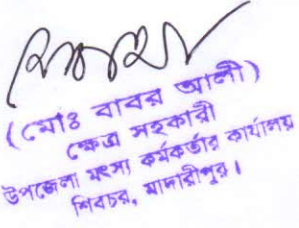 (মোঃ বাবর আলী)
ক্ষেত্র সহকারী
উপজেলা মৎস্য কর্মকর্তার কার্যালয়
শিবচর, মাদারীপুর।